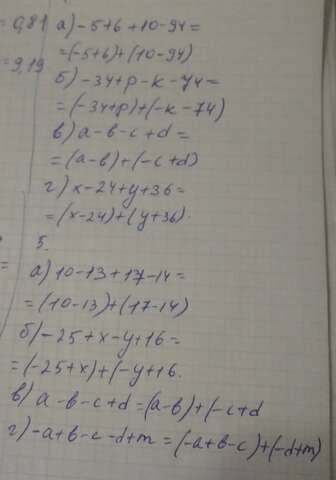 =0,81 а) -5+6+10-94=
=(-5+6)+(10-94)
=9,19 б) -34+p-k-74=
=(-34+p)+(-k-74)
в) a-b-c+d=
=(a-b)+(-c+d)
г) x-24+y+36=
=(x-24)+(y+36)
5.
= а) 10-13+17-14=
=(10-13)+(17-14)
б) -25+x-y+16=
=(-25+x)+(-y+16.
в) a-b-c+d=(a-b)+(-c+d
г) -a+b-c-d+m=(-a+b-c)+(-d+m)